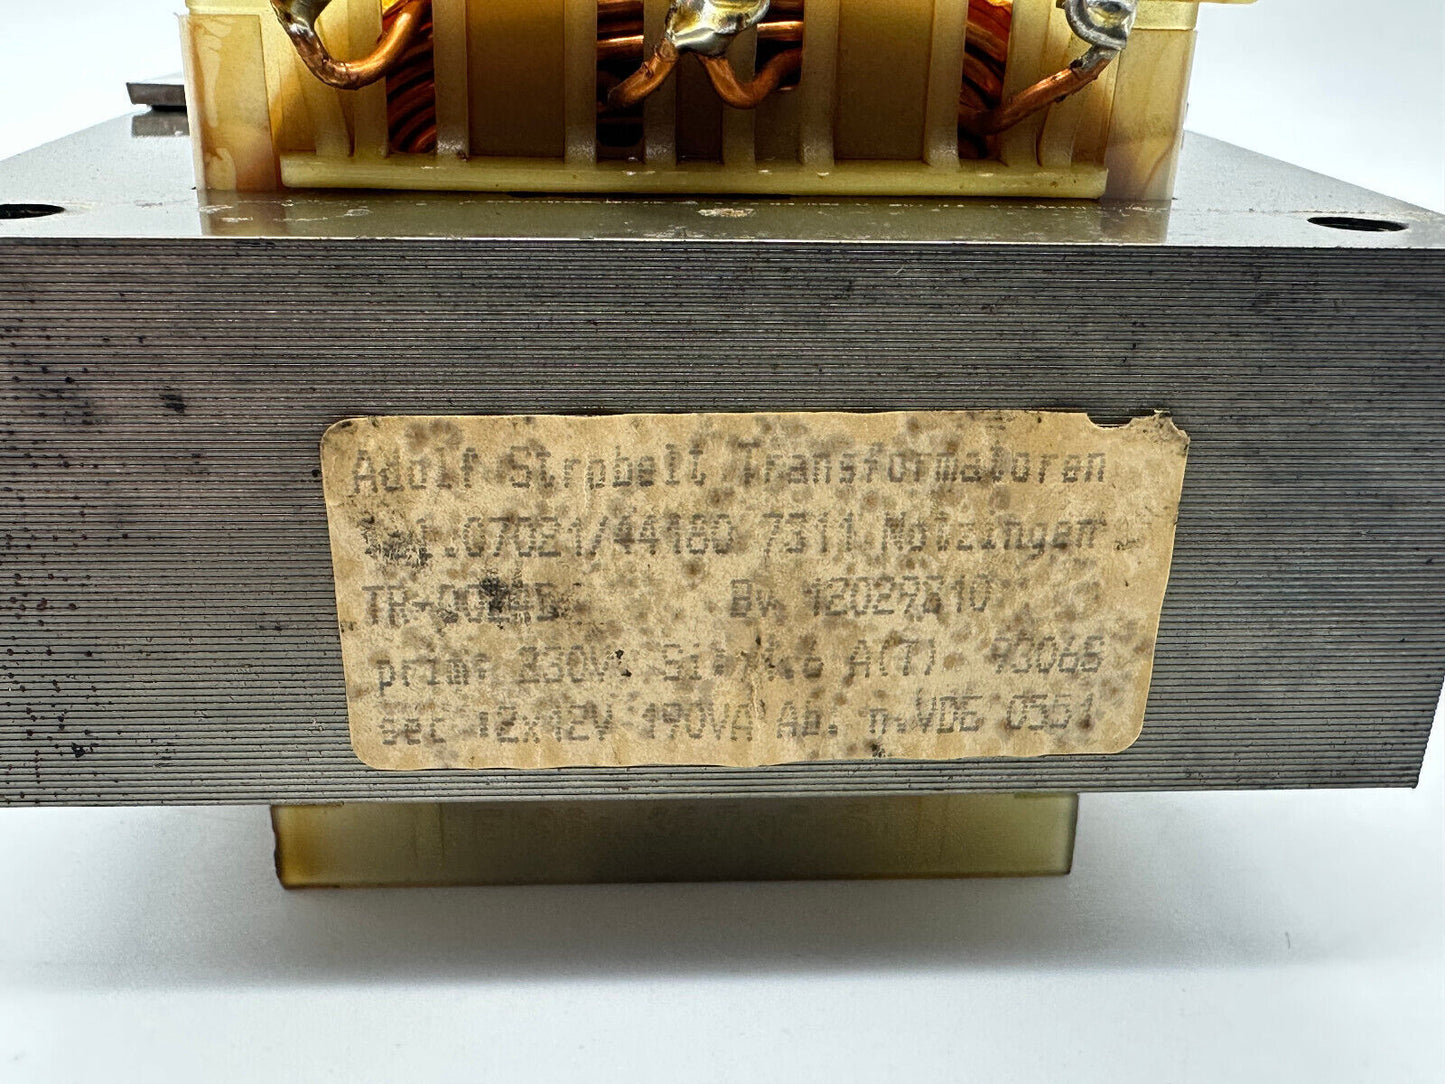 Adolf Strobelt Transformatoren
Tel.07021/44180 7311 Notzingen
TR-00245 Bv 12029810
prim: 230V. Si: 1.6 A(T) 93068
sec 12x12V 190VA Ab. n.VDE 0551